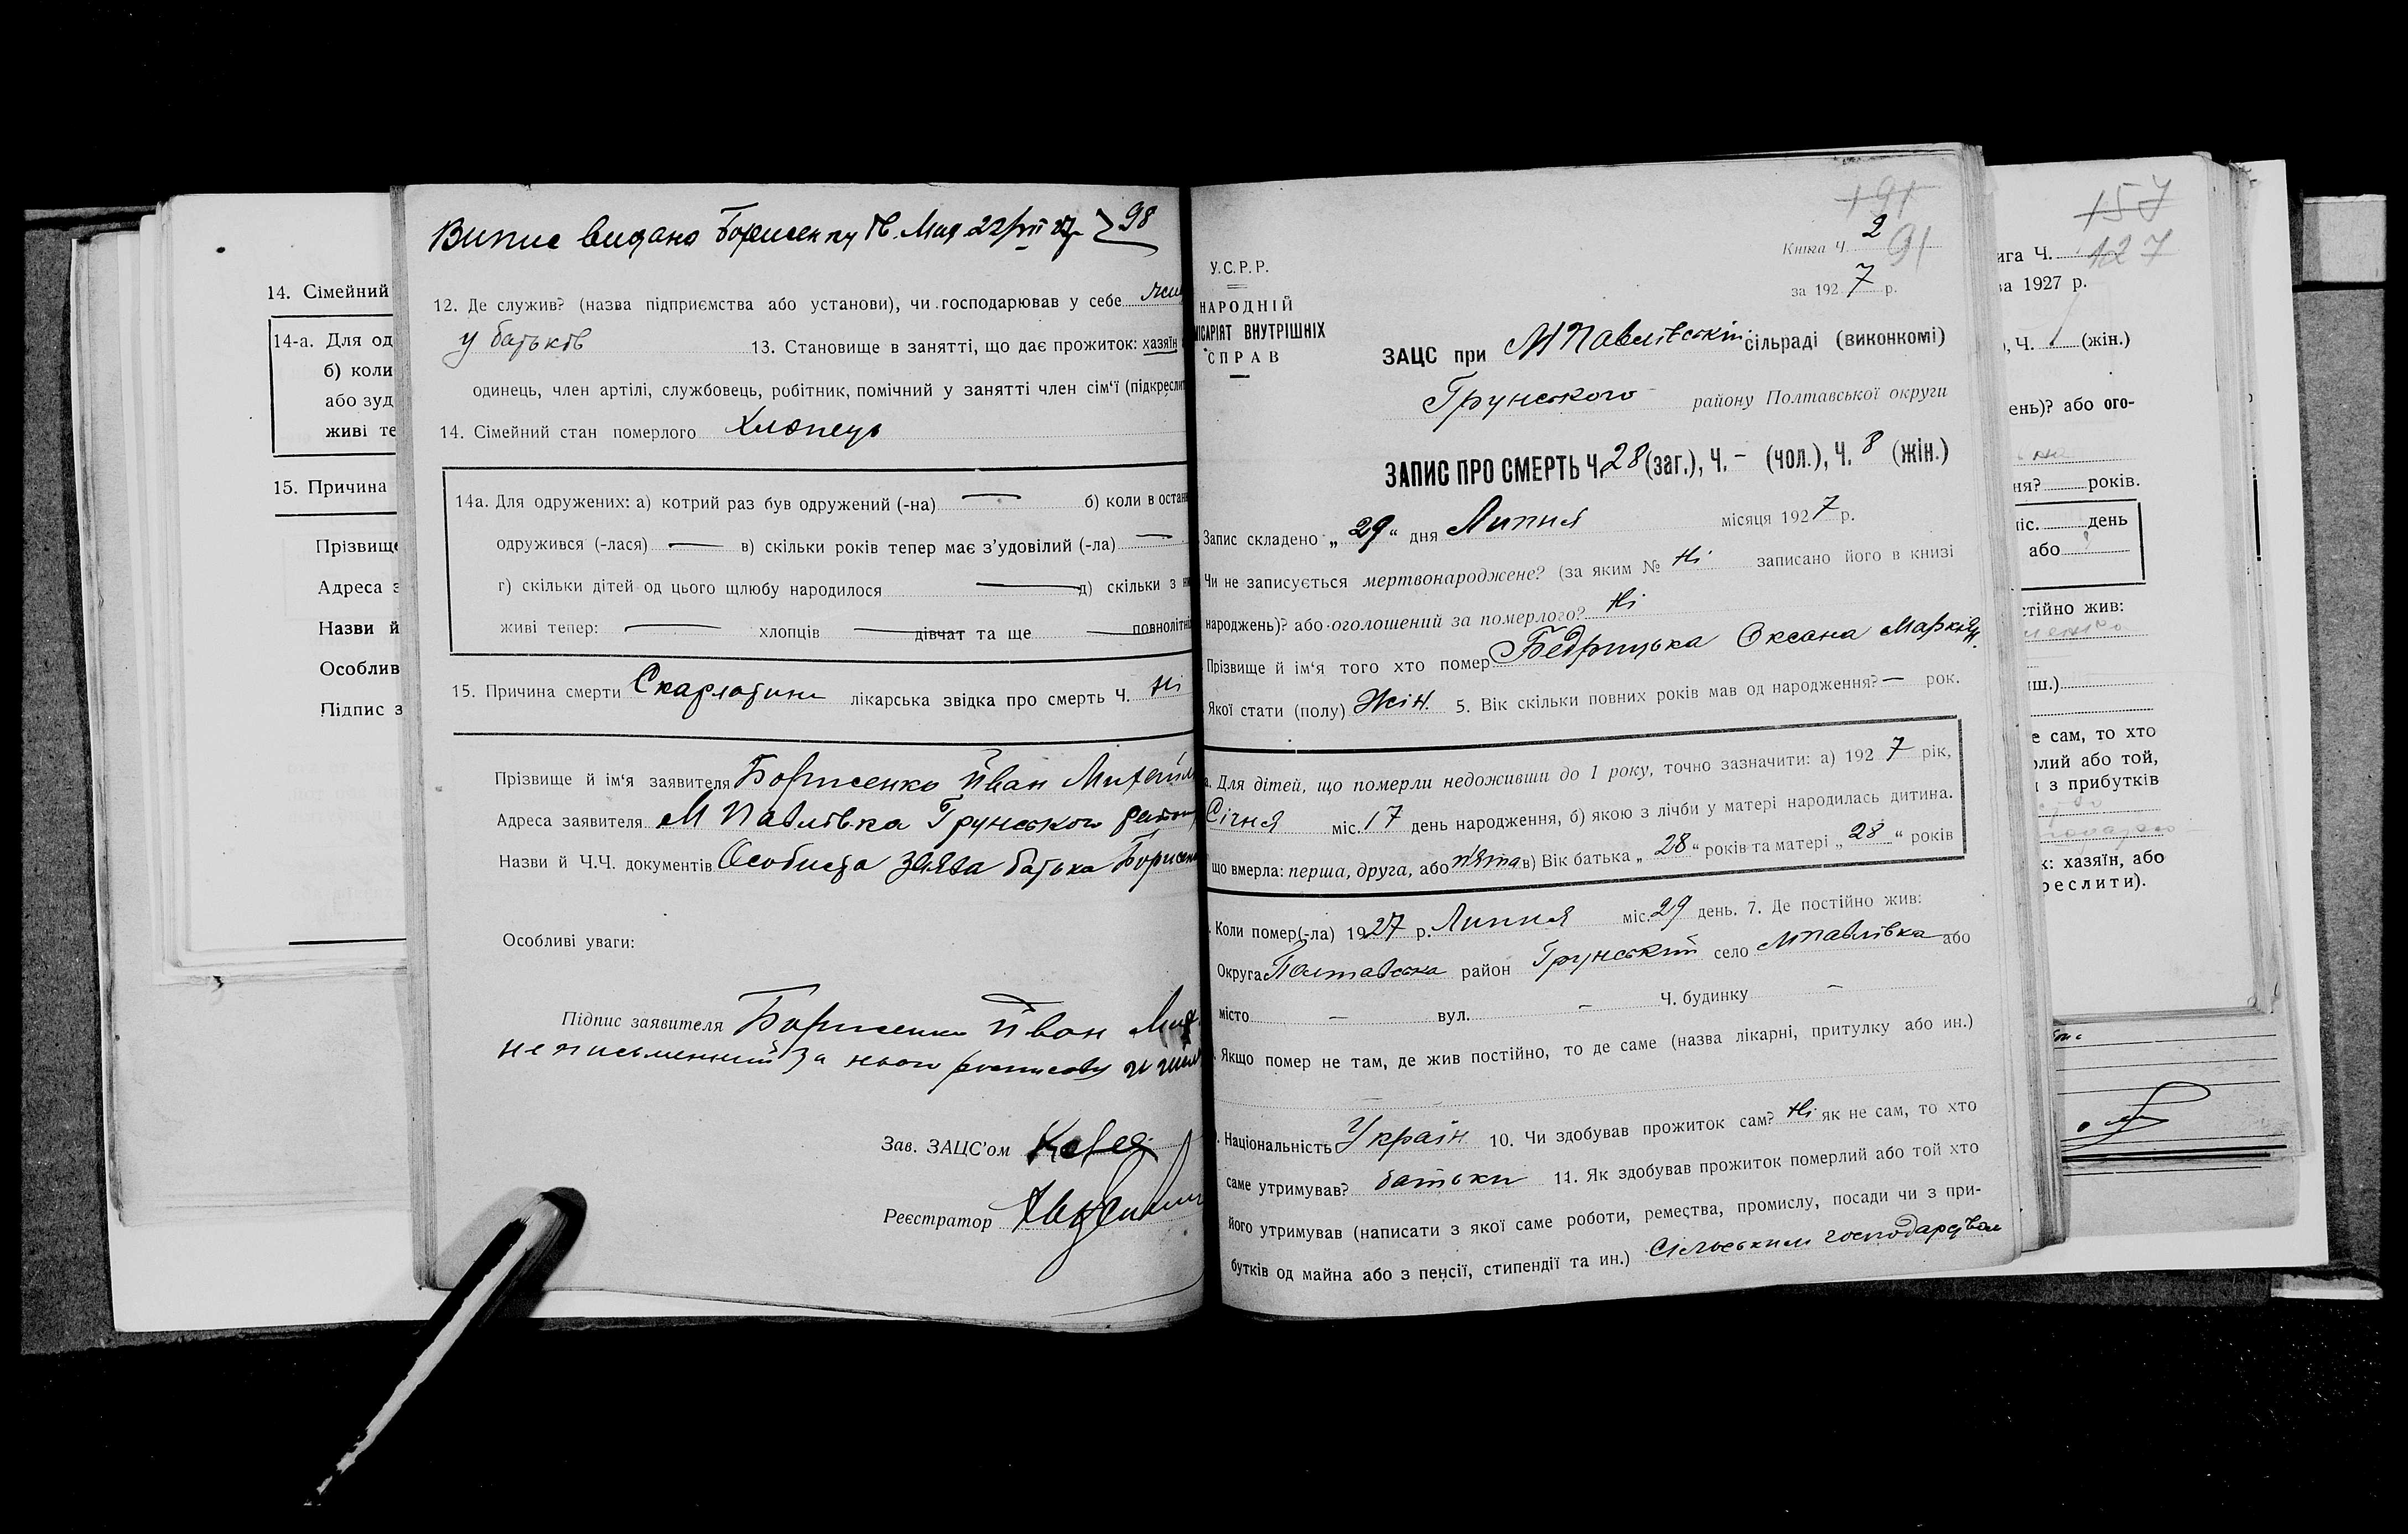 14. Сімейний
14-а. Для од
б) коли
або зуд
живі те
15. Причина
Прізвище
Адреса з
Назви й
Особлив
Підпис з
Випис видано Борисенку Ів. Мих 22/VII 27р 98
12. Де служив? (назва підприємства або установи), чи господарював у себе
у батьків 13. Становище в занятті, що дає прожиток: хазяїн
одинець, член артілі, службовець, робітник, помічний у занятті член сім'ї (підкреслит
14. Сімейний стан померлого Хлопець
14а. Для одружених: а) котрий раз був одружений (-на) — б) коли в остан
одружився (-лася) — в) скільки років тепер має з'удовілий (-ла) —
г) скільки дітей од цього шлюбу народилося — д) скільки з ни
живі тепер: — хлопців — дівчат та ще — повнолітні
15. Причина смерти Скарлатина лікарська звідка про смерть Ч. Ні
Прізвище й ім'я заявителя Борисенко Йван Михайл
Адреса заявителя М Павлівка Грунського район
Назви й Ч.Ч. документів Особиста заява батька Борисен
Особливі уваги:
Підпис заявителя Борисенко Йван Мих
неписьменний за нього
Зав. ЗАЦС'ом
Реєстратор
191
Книга Ч. 2 91
за 1927 р.
У.С.Р.Р.
НАРОДНІЙ
МІСАРІЯТ ВНУТРІШНІХ
СПРАВ
ЗАЦС при МПавлівській сільраді (виконкомі)
Грунського району Полтавської округи
ЗАПИС ПРО СМЕРТЬ Ч. 28 (заг.), Ч. - (чол.), Ч. 8 (жін.)
Запис складено „29“ дня Липня місяця 1927 р.
Чи не записується мертвонароджене? (за яким № Ні записано його в книзі
народжень)? або оголошений за померлого? Ні
Прізвище й ім'я того хто помер Бедрицька Оксана Марків.
Якої стати (полу) Жін. 5. Вік скільки повних років мав од народження? — рок.
а. Для дітей, що померли недоживши до 1 року, точно зазначити: а) 1927 рік,
Січня міс. 17 день народження, б) якою з лічби у матері народилась дитина.
що вмерла: перша, друга, або п'ята в) Вік батька „28“ років та матері „28“ років
Коли помер(-ла) 1927 р. Липня міс. 29 день. 7. Де постійно жив:
Округа Полтавська район Грунський село МПавлівка або
місто — вул. — Ч. будинку —
Якщо помер не там, де жив постійно, то де саме (назва лікарні, притулку або ин.)
Національність Україн 10. Чи здобував прожиток сам? Ні як не сам, то хто
саме утримував? батьки 11. Як здобував прожиток померлий або той хто
його утримував (написати з якої саме роботи, ремества, промислу, посади чи з при-
бутків од майна або з пенсії, стипендії та ин.) Сільським господарством
157
ига Ч. 127
а 1927 р.
), Ч. (жін.)
ень)? або ого-
ня? років.
міс. день
або
стійно жив:
иш.)
е сам, то хто
рлий або той,
и з прибутків
к: хазяїн, або
реслити).